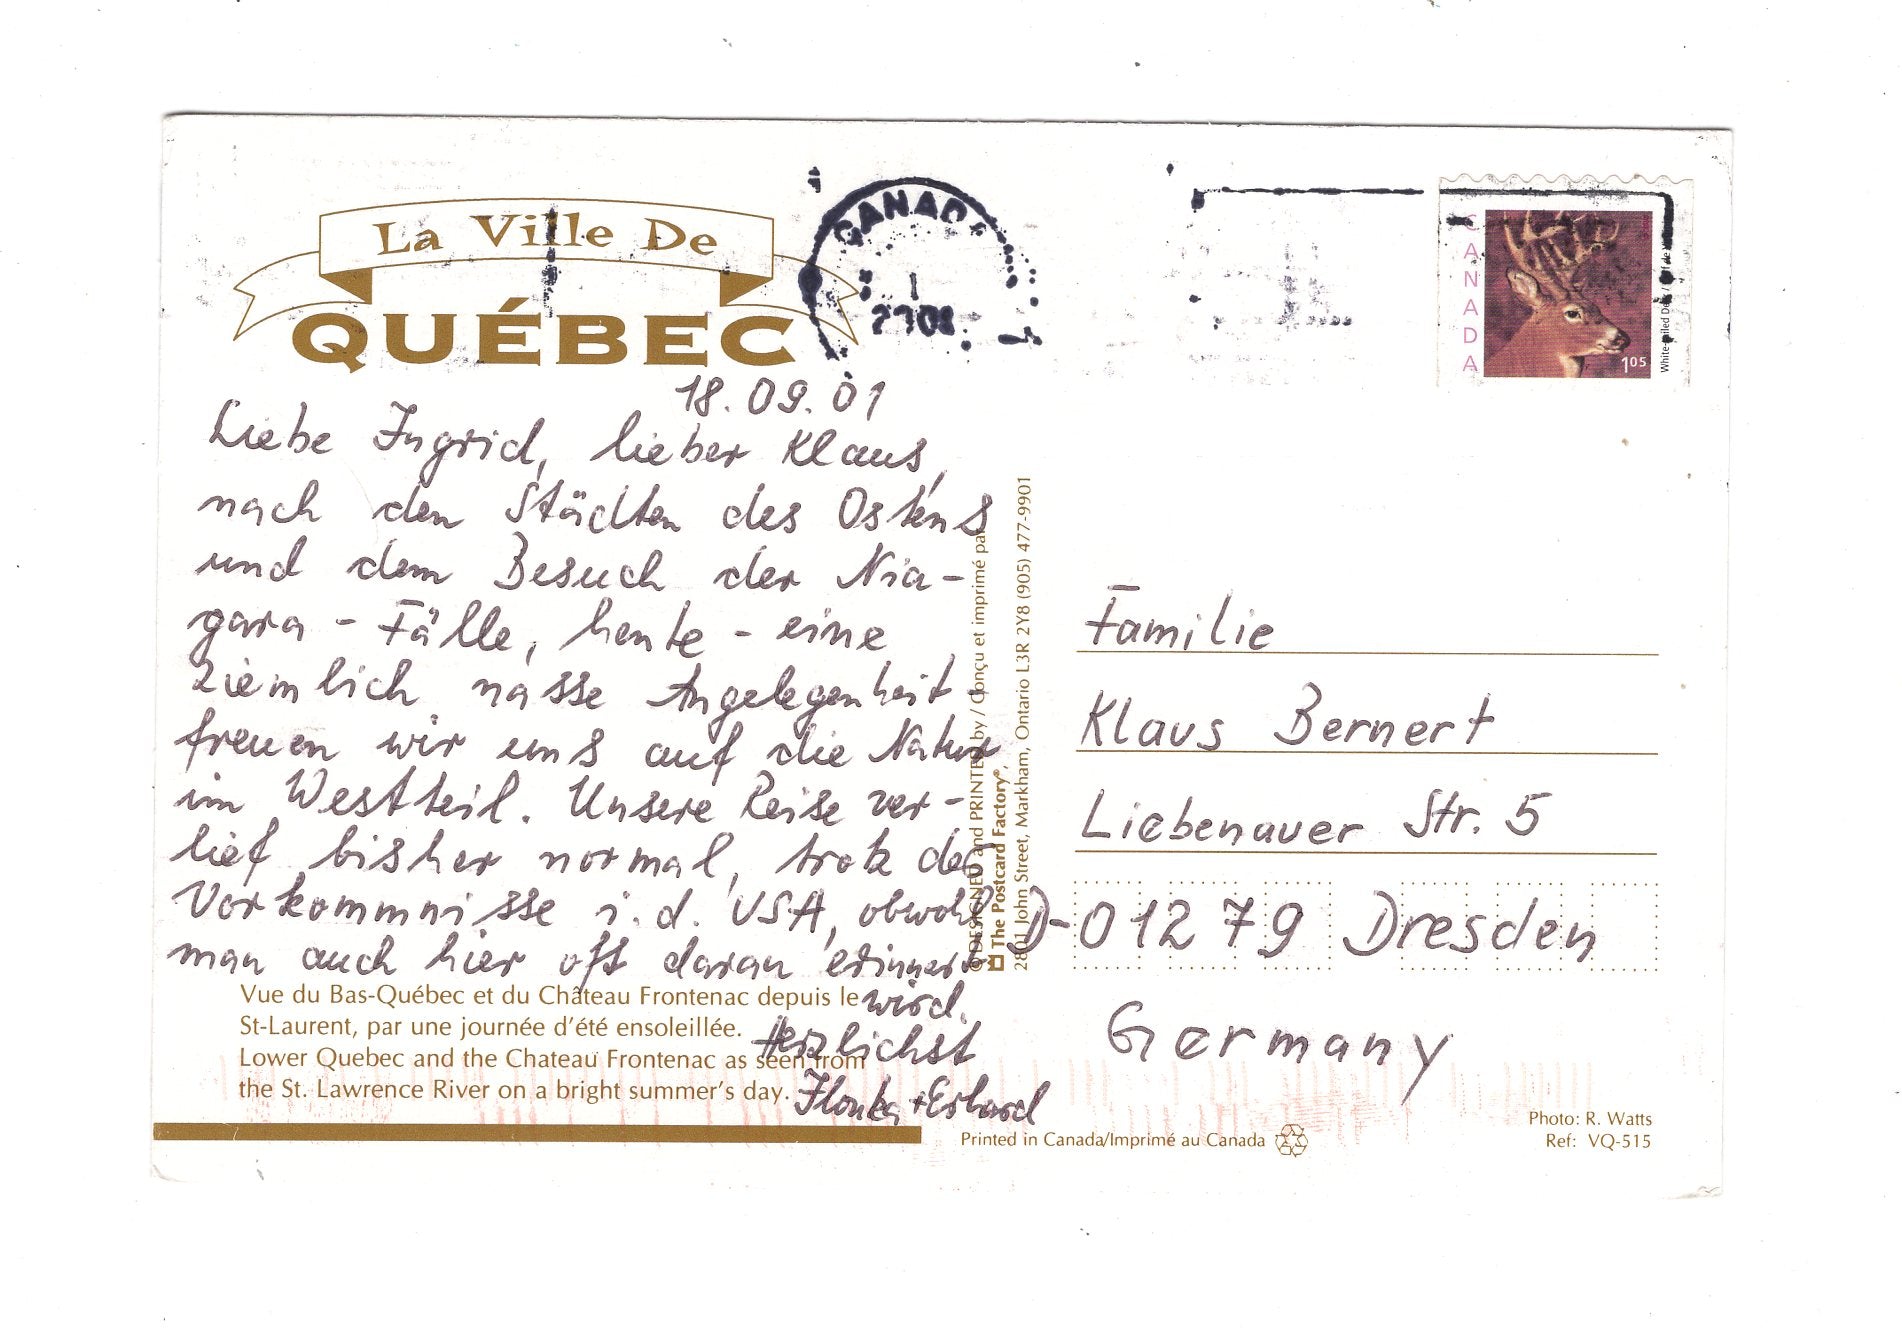 La Ville De
QUÉBEC
CANADA
CANADA
1.05
18.09.01
Liebe Ingrid, lieber Klaus,
nach den Städten des Ostens
und dem Besuch der Nia-
gara-Fälle, heute - eine
ziemlich nasse Angelegenheit -
freuen wir uns auf die Natur
im Westteil. Unsere Reise ver-
lief bisher normal, trotz der
Vorkommnisse i. d. USA, obwohl
man auch hier oft daran erinnert
wird.
Herzlichst
Ilonka + Erhard
Vue du Bas-Québec et du Château Frontenac depuis le
St-Laurent, par une journée d'été ensoleillée.
Lower Quebec and the Chateau Frontenac as seen from
the St. Lawrence River on a bright summer's day.
© DESIGNED and PRINTED by / Conçu et imprimé par
The Postcard Factory®
2801 John Street, Markham, Ontario L3R 2Y8 (905) 477-9901
Familie
Klaus Bernert
Liebenauer Str. 5
D-01279 Dresden
Germany
Printed in Canada/Imprimé au Canada
Photo: R. Watts
Ref: VQ-515